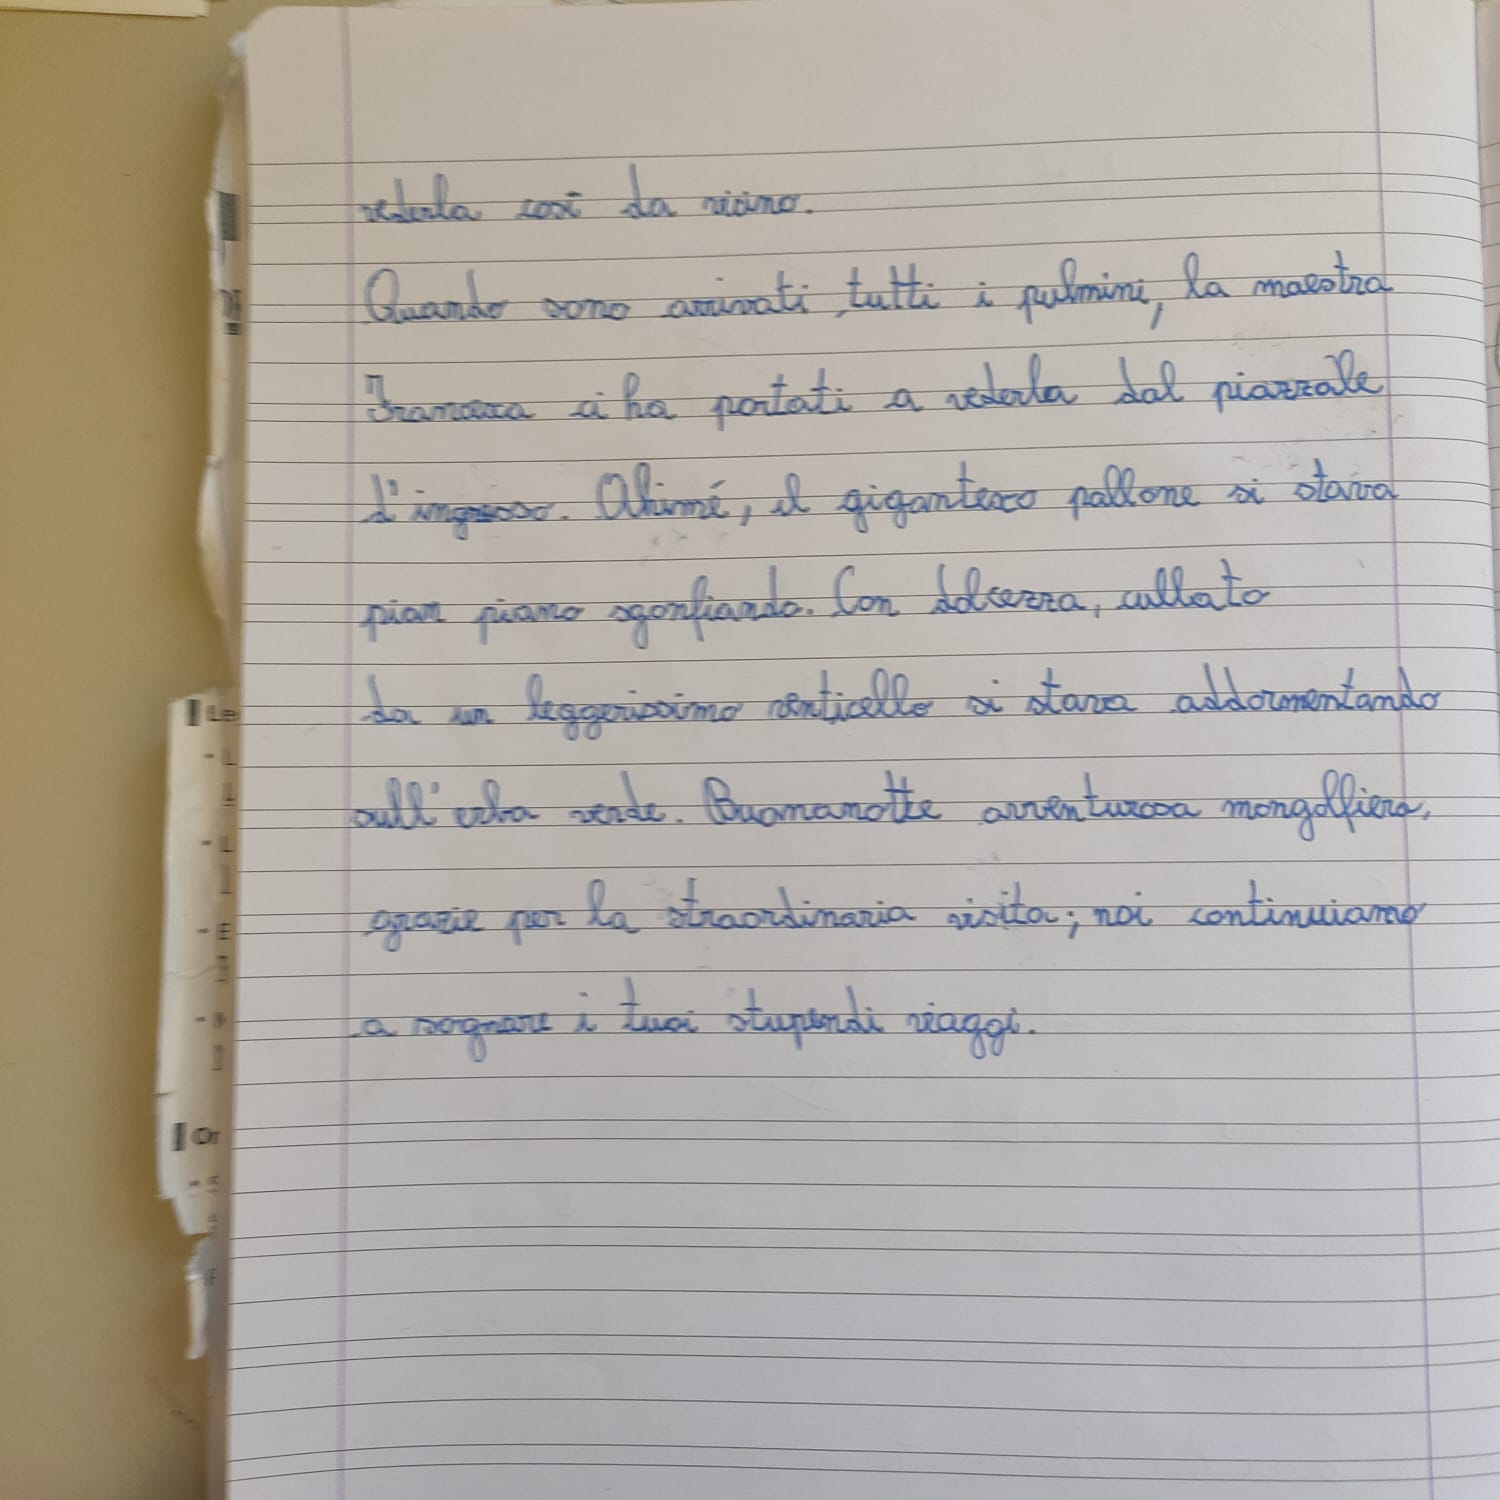 vederla così da vicino.
Quando sono arrivati tutti i pulmini, la maestra
Francesca ci ha portati a vederla dal piazzale
d'ingresso. Ahimé, il gigantesco pallone si stava
pian piano sgonfiando. Con dolcezza, cullato
da un leggerissimo venticello si stava addormentando
sull'erba verde. Buonanotte avventurosa mongolfiera,
grazie per la straordinaria visita; noi continuiamo
a sognare i tuoi stupendi viaggi.
Le
- L
- L
- E
Or